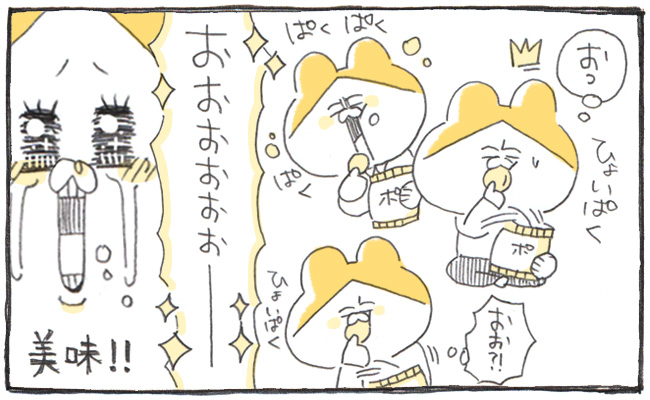 おっ
ひょいぱく
ポ
ぱくぱく
ぱく
ポ
おお?!
ひょいぱく
おおおおおおぉーー
美味!!